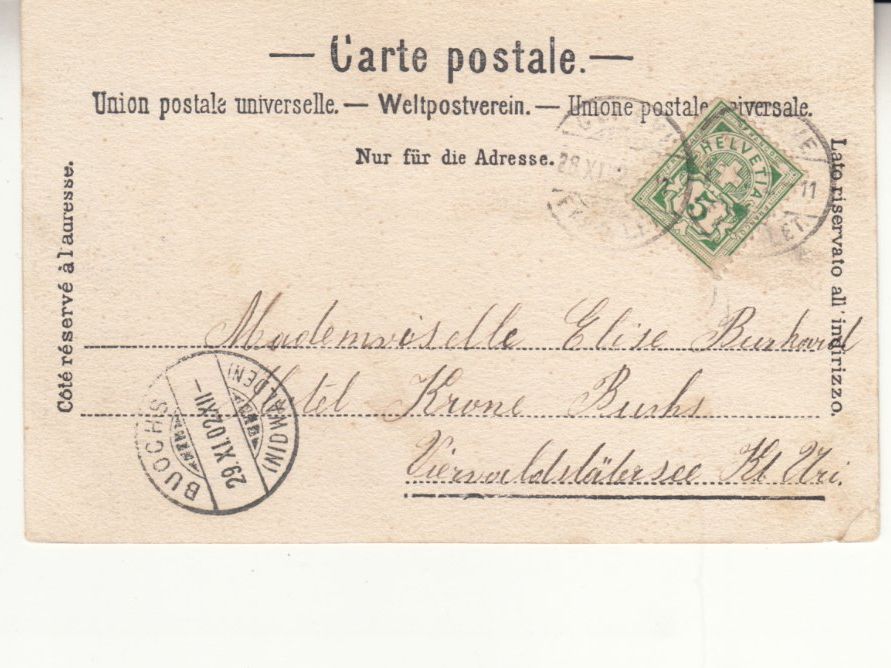 — Carte postale. —
Union postale universelle. — Weltpostverein. — Unione postale universale.
Nur für die Adresse.
Côté réservé à l'adresse.
Lato riservato all'indirizzo.
HELVETIA
5
28 XI
11
LET.
Mademoiselle Elise Burkard
Hotel Krone Buchs
Vierwaldstättersee Kt Uri.
BUOCHS
29.XI.02.XII-
(NIDWALDEN)